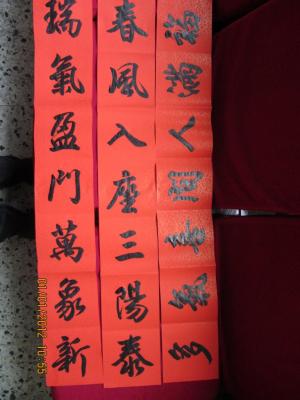 福滿人間喜氣多
春風入座三陽泰
瑞氣盈門萬象新
01/01/2012 10:55